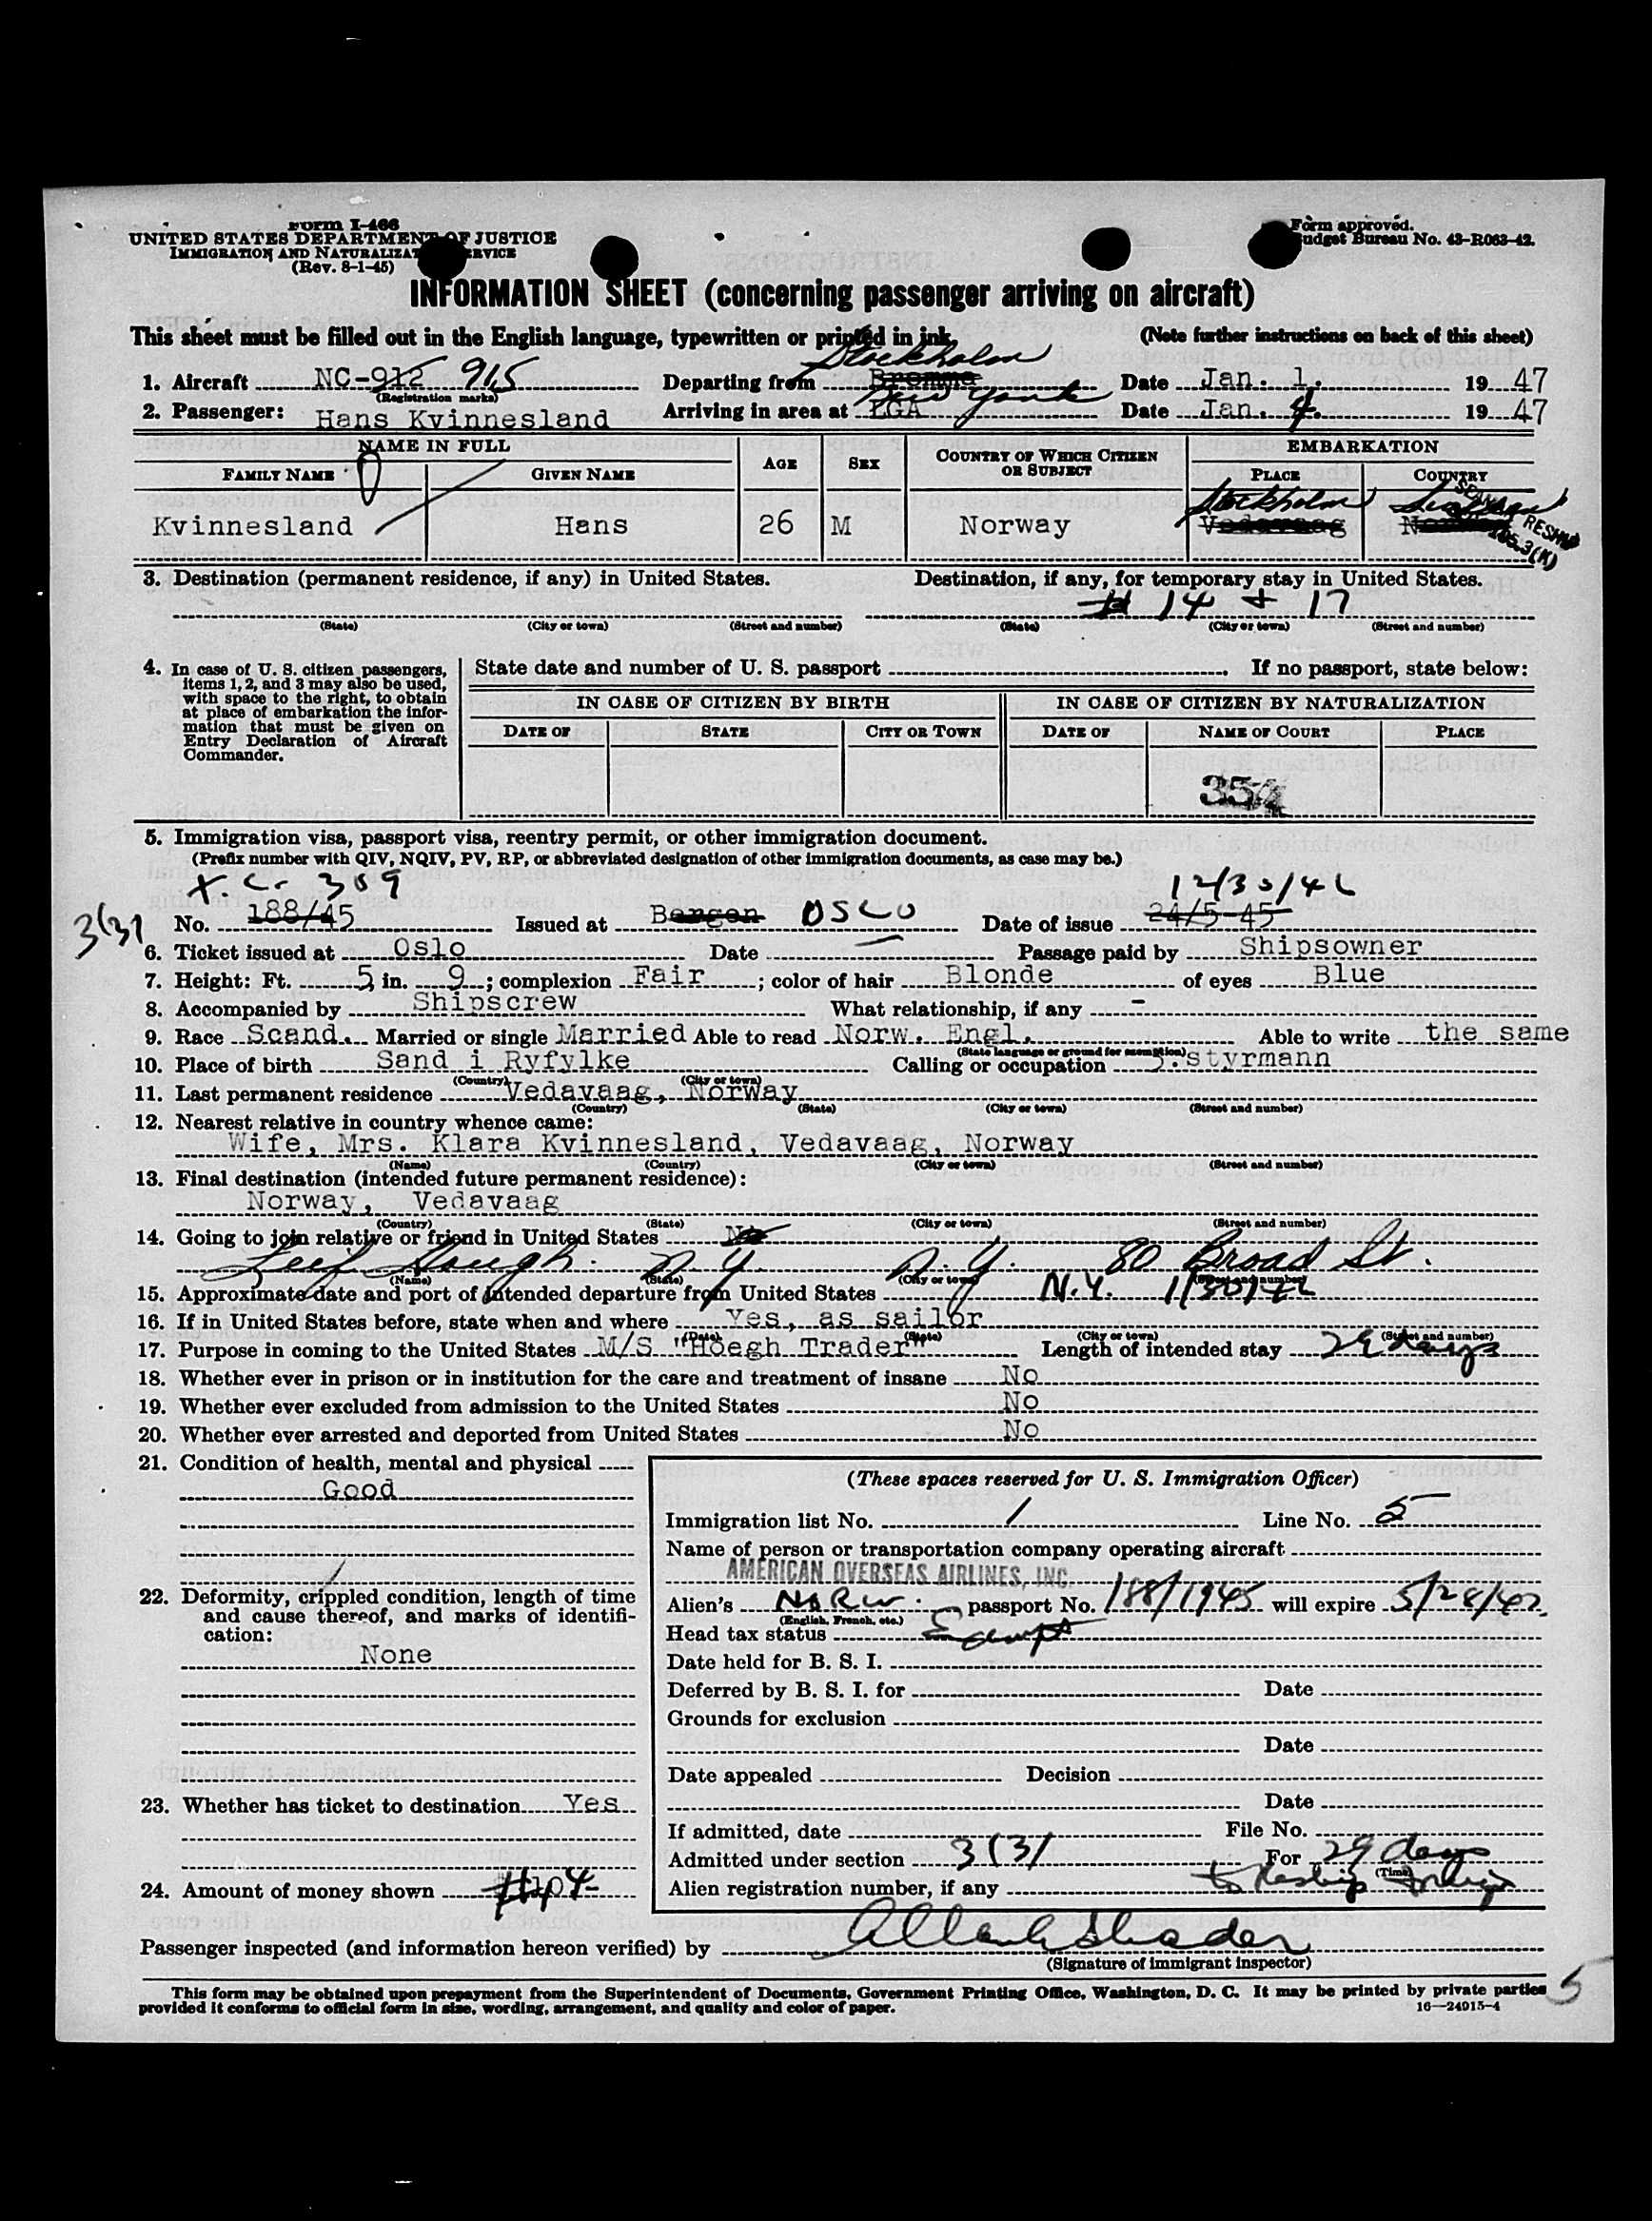 Form I-466
UNITED STATES DEPARTMENT OF JUSTICE
IMMIGRATION AND NATURALIZATION SERVICE
(Rev. 8-1-45)
Form approved.
Budget Bureau No. 43-R063-42.
INFORMATION SHEET (concerning passenger arriving on aircraft)
This sheet must be filled out in the English language, typewritten or printed in ink. (Note further instructions on back of this sheet)
Stockholm
1. Aircraft NC-912 915 Departing from Bromma Date Jan. 1. 1947
(Registration marks) New York
2. Passenger: Hans Kvinnesland Arriving in area at LGA Date Jan. 4. 1947
NAME IN FULL AGE SEX COUNTRY OF WHICH CITIZEN OR SUBJECT EMBARKATION
FAMILY NAME GIVEN NAME PLACE COUNTRY
Stockholm Sweden
Kvinnesland Hans 26 M Norway Vedavaag
RESHIP
3. Destination (permanent residence, if any) in United States. Destination, if any, for temporary stay in United States.
# 14 + 17
(State) (City or town) (Street and number) (State) (City or town) (Street and number)
4. In case of U. S. citizen passengers, items 1, 2, and 3 may also be used, with space to the right, to obtain at place of embarkation the information that must be given on Entry Declaration of Aircraft Commander.
State date and number of U. S. passport If no passport, state below:
IN CASE OF CITIZEN BY BIRTH IN CASE OF CITIZEN BY NATURALIZATION
DATE OF STATE CITY OR TOWN DATE OF NAME OF COURT PLACE
354
5. Immigration visa, passport visa, reentry permit, or other immigration document.
(Prefix number with QIV, NQIV, PV, RP, or abbreviated designation of other immigration documents, as case may be.)
12/30/46
3(3)
No. 188/45 Issued at Bergen OSLO Date of issue 24/5-45
6. Ticket issued at Oslo Date — Passage paid by Shipsowner
7. Height: Ft. 5 in. 9 ; complexion Fair ; color of hair Blonde of eyes Blue
8. Accompanied by Shipscrew What relationship, if any -
9. Race Scand. Married or single Married Able to read Norw. Engl. Able to write the same
(State language or ground for exemption)
10. Place of birth Sand i Ryfylke Calling or occupation styrmann
(Country) (City or town)
11. Last permanent residence Vedavaag, Norway
(Country) (State) (City or town) (Street and number)
12. Nearest relative in country whence came:
Wife, Mrs. Klara Kvinnesland, Vedavaag, Norway
(Name) (Country) (City or town) (Street and number)
13. Final destination (intended future permanent residence):
Norway, Vedavaag
(Country) (State) (City or town) (Street and number)
14. Going to join relative or friend in United States No
Leif Hough. N.Y. N.Y. 80 Broad St.
(Name) (State) (City or town) (Street and number)
15. Approximate date and port of intended departure from United States N.Y.
16. If in United States before, state when and where Yes, as sailor
(Date) (State) (City or town) (Street and number)
17. Purpose in coming to the United States M/S "Hoegh Trader" Length of intended stay 29 days
18. Whether ever in prison or in institution for the care and treatment of insane No
19. Whether ever excluded from admission to the United States No
20. Whether ever arrested and deported from United States No
21. Condition of health, mental and physical
Good
22. Deformity, crippled condition, length of time and cause thereof, and marks of identification:
None
23. Whether has ticket to destination Yes
24. Amount of money shown
(These spaces reserved for U. S. Immigration Officer)
Immigration list No. 1 Line No. 5
Name of person or transportation company operating aircraft
AMERICAN OVERSEAS AIRLINES, INC.
Alien's NORW. passport No. 188/1945 will expire 5/28/47
(English, French, etc.)
Head tax status Exempt
Date held for B. S. I.
Deferred by B. S. I. for Date
Grounds for exclusion
Date
Date appealed Decision
Date
If admitted, date File No.
Admitted under section 3(3) For 29 days
(Time)
Alien registration number, if any to Reship foreign
Passenger inspected (and information hereon verified) by
(Signature of immigrant inspector)
This form may be obtained upon prepayment from the Superintendent of Documents, Government Printing Office, Washington, D. C. It may be printed by private parties
provided it conforms to official form in size, wording, arrangement, and quality and color of paper. 16—24915-4
5